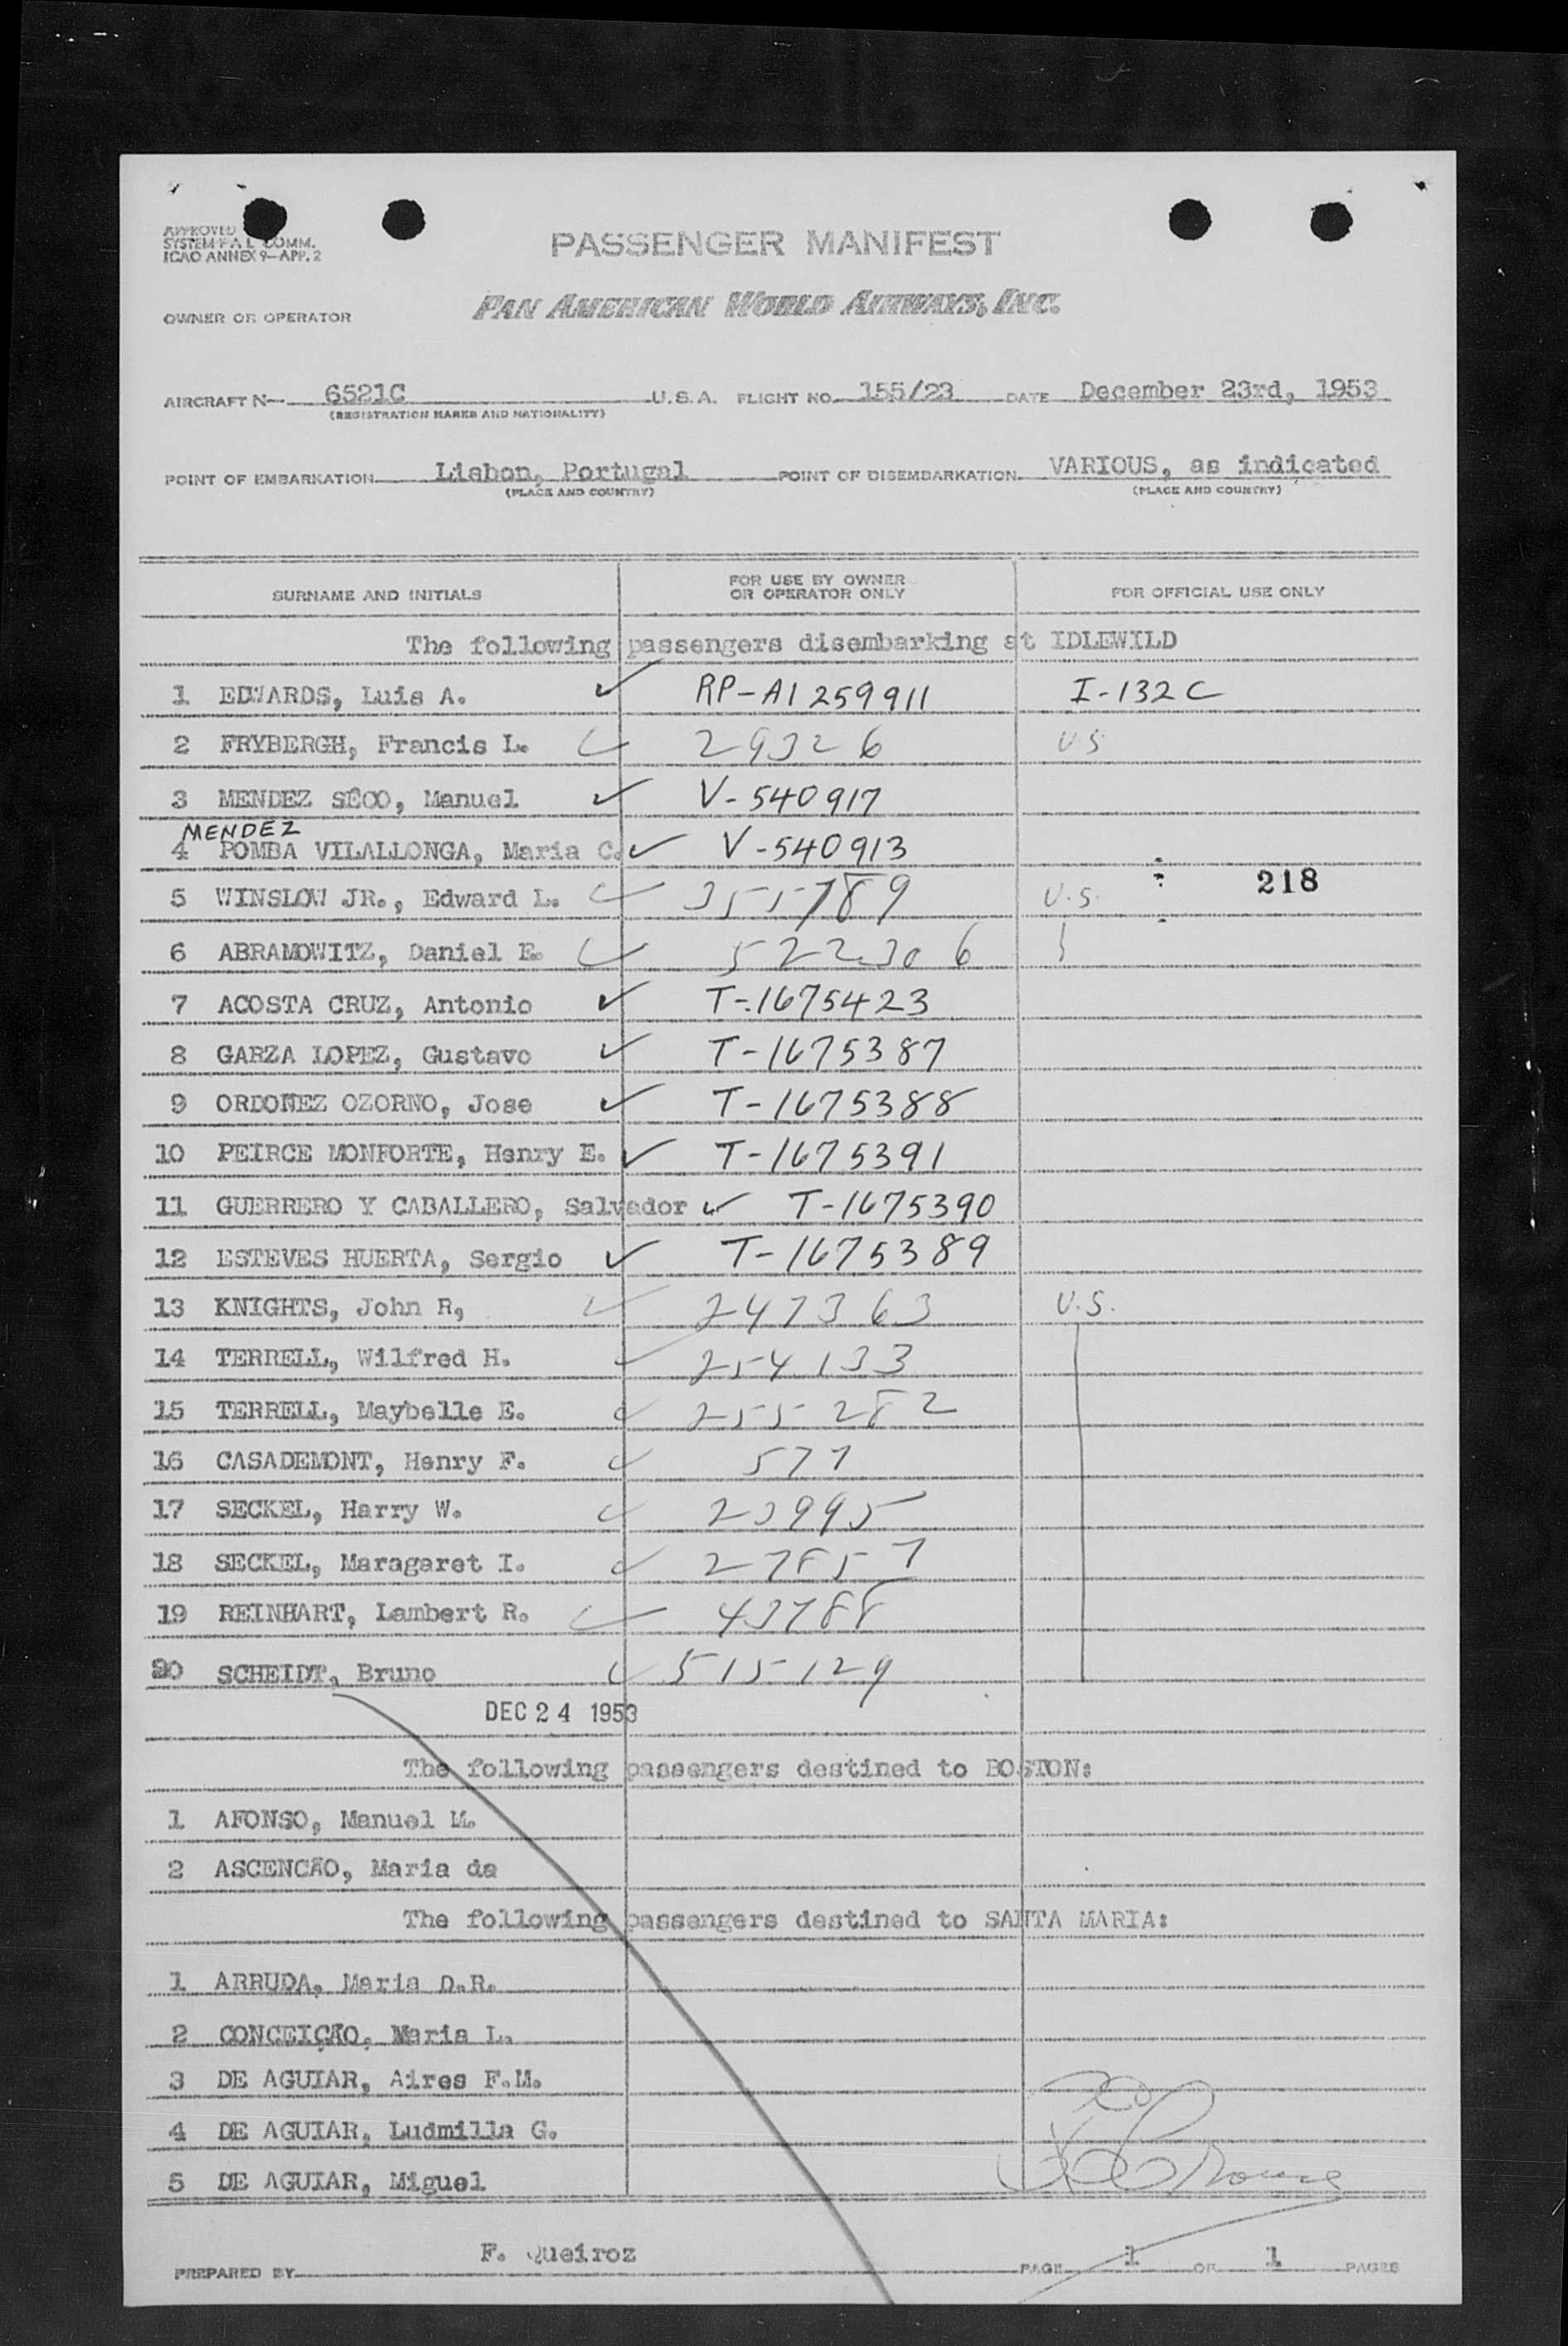 APPROVED
SYSTEM F A L COMM.
ICAO ANNEX 9—APP. 2
PASSENGER MANIFEST
OWNER OR OPERATOR PAN AMERICAN WORLD AIRWAYS, INC.
AIRCRAFT N— 6521C U.S.A. FLIGHT NO. 155/23 DATE December 23rd, 1953
(REGISTRATION MARKS AND NATIONALITY)
POINT OF EMBARKATION Lisbon, Portugal POINT OF DISEMBARKATION VARIOUS, as indicated
(PLACE AND COUNTRY) (PLACE AND COUNTRY)
SURNAME AND INITIALS FOR USE BY OWNER OR OPERATOR ONLY FOR OFFICIAL USE ONLY
The following passengers disembarking at IDLEWILD
1 EDWARDS, Luis A. ✓ RP-A1259911 I-132C
2 FRYBERGH, Francis L. ✓ 29326 US
3 MENDEZ SECO, Manuel ✓ V-540917
MENDEZ
4 POMBA VILALLONGA, Maria C. ✓ V-540913
218
5 WINSLOW JR., Edward L. ✓ 355789 U.S.
6 ABRAMOWITZ, Daniel E. ✓ 522306
7 ACOSTA CRUZ, Antonio ✓ T-1675423
8 GARZA LOPEZ, Gustavo ✓ T-1675387
9 ORDOÑEZ OZORNO, Jose ✓ T-1675388
10 PEIRCE MONFORTE, Henry E. ✓ T-1675391
11 GUERRERO Y CABALLERO, Salvador ✓ T-1675390
12 ESTEVES HUERTA, Sergio ✓ T-1675389
13 KNIGHTS, John R, ✓ 247363 U.S.
14 TERRELL, Wilfred H. ✓ 254133
15 TERRELL, Maybelle E. ✓ 255282
16 CASADEMONT, Henry F. ✓ 577
17 SECKEL, Harry W. ✓ 23995
18 SECKEL, Maragaret I. ✓ 27857
19 REINHART, Lambert R. ✓ 43788
20 SCHEIDT, Bruno ✓ 515129
DEC 24 1953
The following passengers destined to BOSTON:
1 AFONSO, Manuel M.
2 ASCENCÃO, Maria da
The following passengers destined to SANTA MARIA:
1 ARRUDA, Maria D.R.
2 CONCEIÇÃO, Maria L.
3 DE AGUIAR, Aires F.M.
4 DE AGUIAR, Ludmilla G.
5 DE AGUIAR, Miguel
PREPARED BY F. Queiroz PAGE 1 OF 1 PAGES